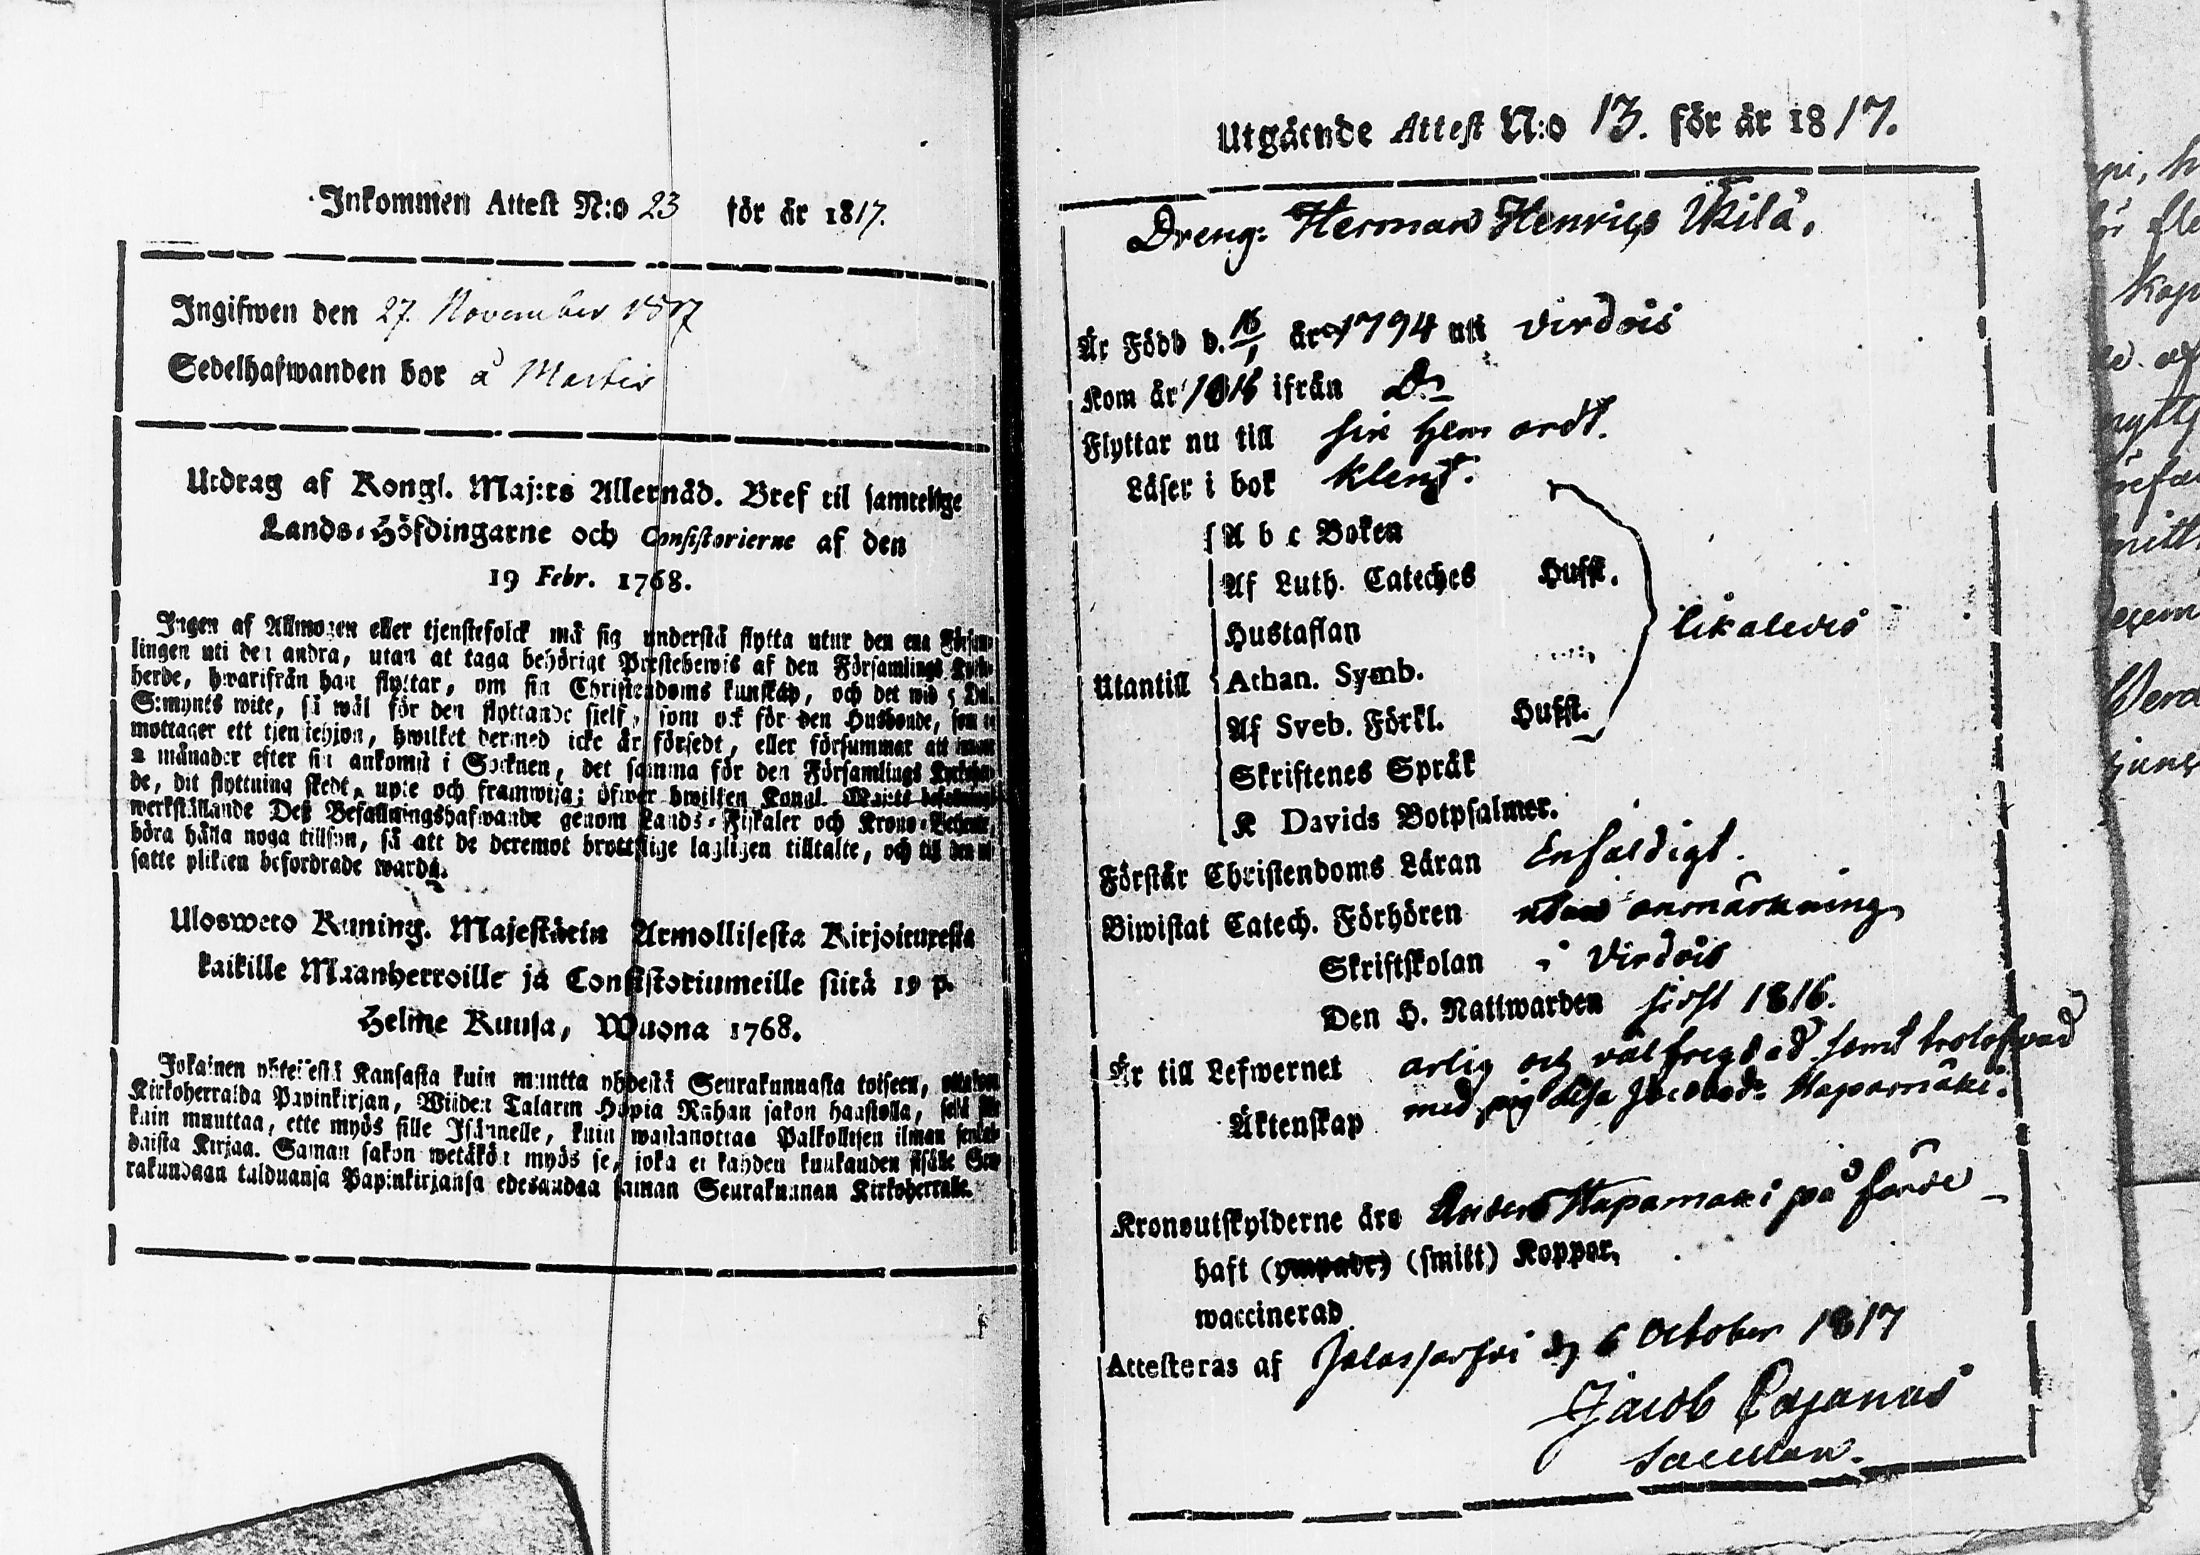 Inkommen Attest N:o 23 för år 1817.
Ingifwen den 27 November 1817
Sedelhafwanden bor å Martis
Utdrag af Kongl. Maj:ts Allernåd. Bref til samtelige
Lands-Höfdingarne och Consistorierne af den
19 Febr. 1768.
Ingen af Allmogen eller tjenstefolck må sig understå flytta utur den ena Försam-
lingen uti den andra, utan at taga behörigt Prestebewis af den Församlings Kyrko-
herde, hwarifrån han flyttar, om sin Christendoms kunskap, och det wid 5 Dal.
S:mynts wite, så wäl för den flyttande sielf, som ock för den Husbonde, som
mottager ett tjenstehjon, hwilket dermed icke är försedt, eller försummar att innom
2 månader efter sin ankomst i Socknen, det samma för den Församlings Kyrkoher-
de, dit flyttning skedt, upte och framwisa; öfwer hwilken Kongl. Maj:ts befallnings
werkställande Deß Befallningshafwande genom Lands-Fiskaler och Krono-Betjente,
böra hålla noga tillsyn, så att de deremot brottslige lagligen tilltalte, och til den
satte plikten befordrade warda.
Ulosweto Kuning. Majestätin Armollisesta Kirjoituxesta
kaikille Maanherroille ja Consistoriumeille siitä 19 p.
Helme Kuusa, Wuona 1768.
Jokainen yhteisestä Kansasta kuin muutta yhdestä Seurakunnasta toiseen, ottakon
Kirkoherralda Papinkirjan, Wiiden Talarin Hopia Rahan sakon haastolla, sekä sille
kuin muuttaa, ette myös sille Isännelle, kuin wastanottaa Palkollisen ilman
daista Kirjaa. Saman sakon wetäkön myös se, joka ei kahden kuukauden sisälle Seu-
rakundaan tulduansa Papinkirjansa edesandaa saman Seurakunnan Kirkoherralle.
Utgående Attest N:o 13. för år 1817.
Dreng: Herman Henrics Ukilä.
Är Född d. 16/1 år 1794 uti Virdois
Kom år 1816 ifrån D:o
Flyttar nu till sin hem ordt.
Läser i bok klent.
A b c Boken
Af Luth. Cateches Hufft.
Hustaflan likaledes
Utantill Athan. Symb.
Af Sveb. Förkl. Hufft.
Skriftenes Språk
K Davids Botpsalmer.
Förstår Christendoms Läran Enfaldigt.
Biwistat Catech. Förhören utan anmärkning
Skriftskolan i Virdois
Den H. Nattwarden sidst 1816.
Är till Lefwernet ärlig och välfregdad samt trolofwad
Äktenskap med pig Elsa Jacobsd:r Hapamäki.
Kronoutskylderne äro Anders Hapamäki på förde
haft (ympade) (smitt) Koppor,
waccinerad
Attesteras af Jalasjärfvi d 6 October 1817
Jacob Pajanus
Sacellan.